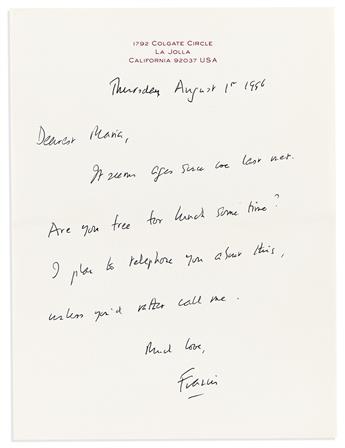 1792 COLGATE CIRCLE
LA JOLLA
CALIFORNIA 92037 USA
Thursday August 1st 1996
Dearest Maria,
It seems ages since we last met.
Are you free for lunch some time?
I plan to telephone you about this,
unless you'd rather call me.
Much love,
Francis